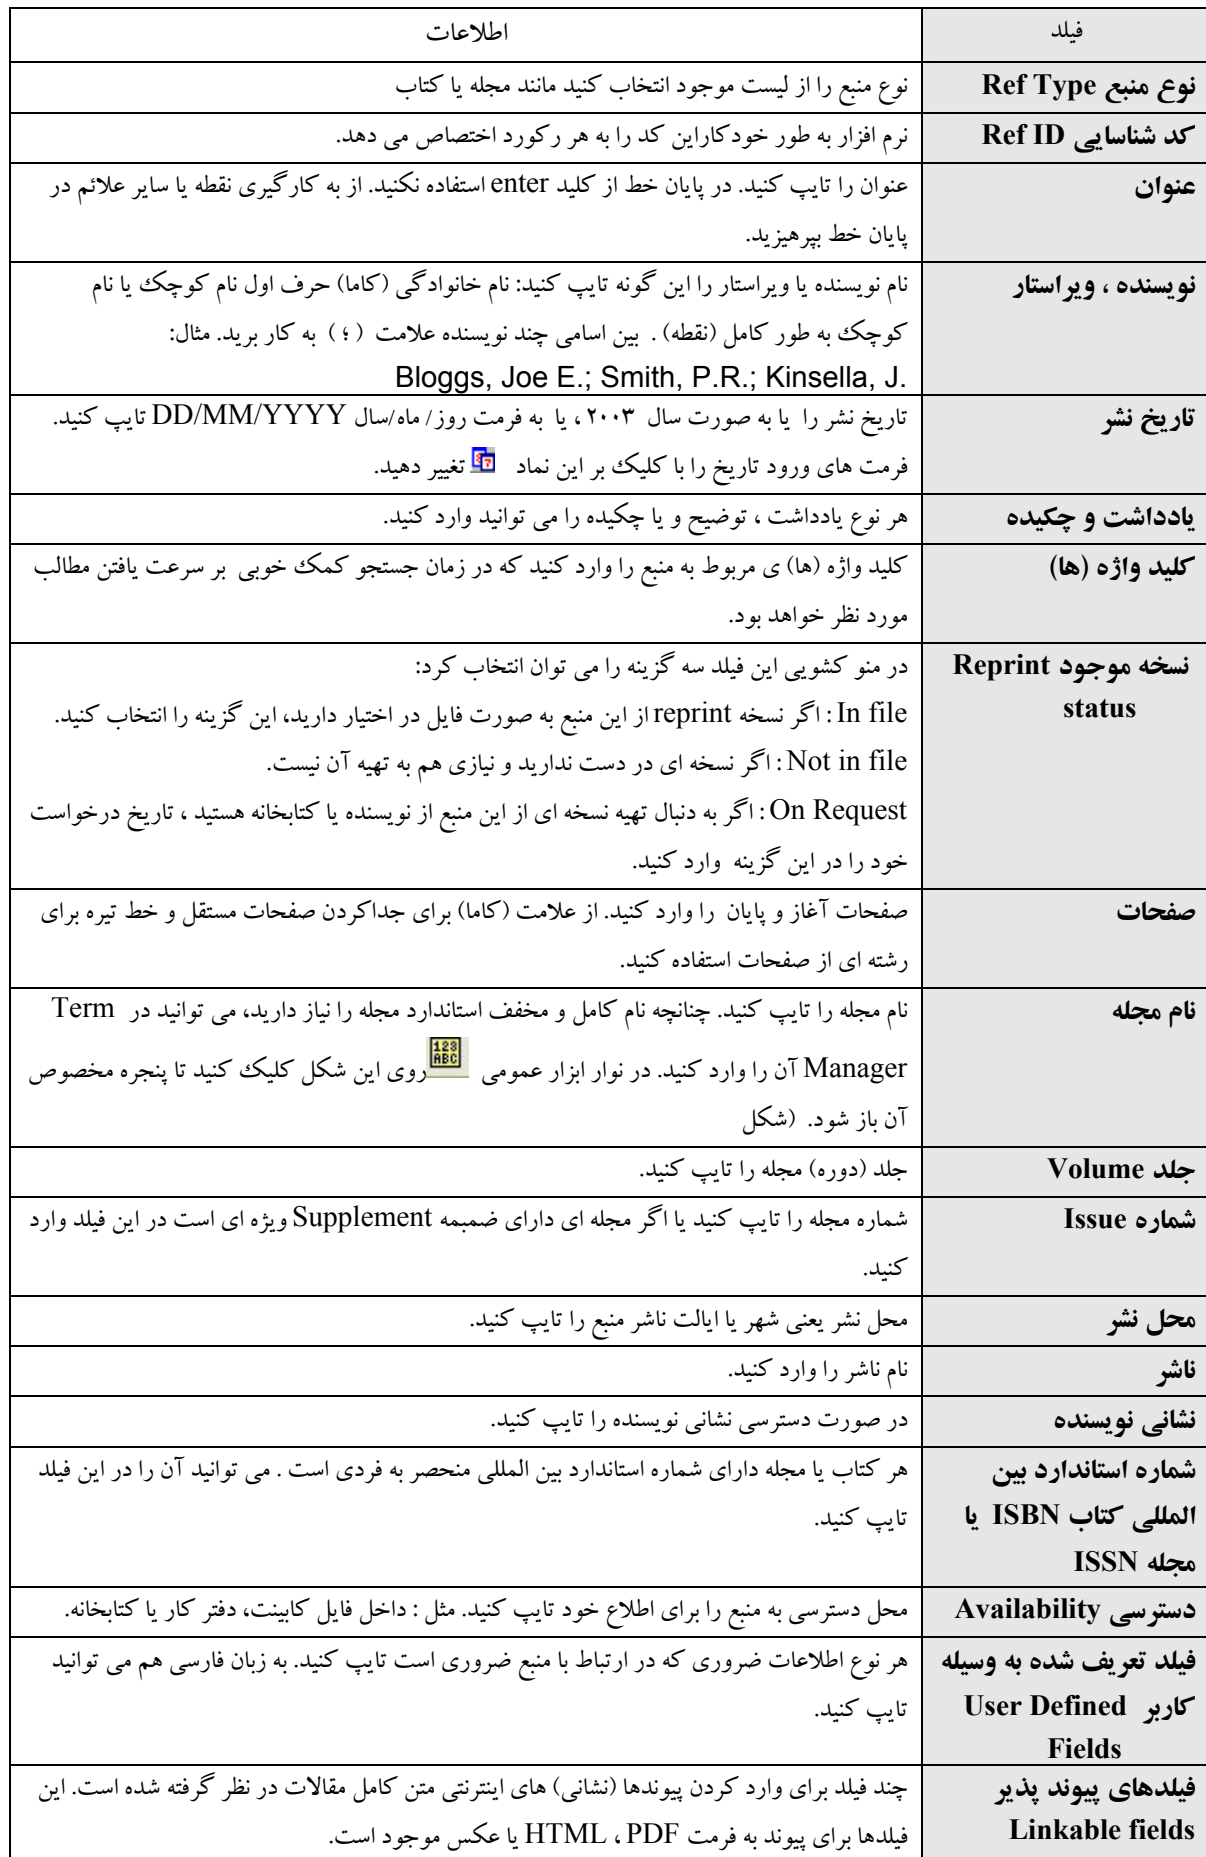 فیلد
اطلاعات
نوع منبع Ref Type
نوع منبع را از لیست موجود انتخاب کنید مانند مجله یا کتاب
کد شناسایی Ref ID
نرم افزار به طور خودکاراین کد را به هر رکورد اختصاص می دهد.
عنوان
عنوان را تایپ کنید. در پایان خط از کلید enter استفاده نکنید. از به کارگیری نقطه یا سایر علائم در
پایان خط بپرهیزید.
نویسنده ، ویراستار
نام نویسنده یا ویراستار را این گونه تایپ کنید: نام خانوادگی (کاما) حرف اول نام کوچک یا نام
کوچک به طور کامل (نقطه) . بین اسامی چند نویسنده علامت ( ؛ ) به کار برید. مثال:
Bloggs, Joe E.; Smith, P.R.; Kinsella, J.
تاریخ نشر
تاریخ نشر را یا به صورت سال ۲۰۰۳ ، یا به فرمت روز/ ماه/سال DD/MM/YYYY تایپ کنید.
فرمت های ورود تاریخ را با کلیک بر این نماد تغییر دهید.
یادداشت و چکیده
هر نوع یادداشت ، توضیح و یا چکیده را می توانید وارد کنید.
کلید واژه (ها)
کلید واژه (ها) ی مربوط به منبع را وارد کنید که در زمان جستجو کمک خوبی بر سرعت یافتن مطالب
مورد نظر خواهد بود.
نسخه موجود Reprint
status
در منو کشویی این فیلد سه گزینه را می توان انتخاب کرد:
In file : اگر نسخه reprint از این منبع به صورت فایل در اختیار دارید، این گزینه را انتخاب کنید.
Not in file : اگر نسخه ای در دست ندارید و نیازی هم به تهیه آن نیست.
On Request : اگر به دنبال تهیه نسخه ای از این منبع از نویسنده یا کتابخانه هستید ، تاریخ درخواست
خود را در این گزینه وارد کنید.
صفحات
صفحات آغاز و پایان را وارد کنید. از علامت (کاما) برای جداکردن صفحات مستقل و خط تیره برای
رشته ای از صفحات استفاده کنید.
نام مجله
نام مجله را تایپ کنید. چنانچه نام کامل و مخفف استاندارد مجله را نیاز دارید، می توانید در Term
Manager آن را وارد کنید. در نوار ابزار عمومی 123 ABC روی این شکل کلیک کنید تا پنجره مخصوص
آن باز شود. (شکل
جلد Volume
جلد (دوره) مجله را تایپ کنید.
شماره Issue
شماره مجله را تایپ کنید یا اگر مجله ای دارای ضمبمه Supplement ویژه ای است در این فیلد وارد
کنید.
محل نشر
محل نشر یعنی شهر یا ایالت ناشر منبع را تایپ کنید.
ناشر
نام ناشر را وارد کنید.
نشانی نویسنده
در صورت دسترسی نشانی نویسنده را تایپ کنید.
شماره استاندارد بین
المللی کتاب ISBN یا
مجله ISSN
هر کتاب یا مجله دارای شماره استاندارد بین المللی منحصر به فردی است . می توانید آن را در این فیلد
تایپ کنید.
دسترسی Availability
محل دسترسی به منبع را برای اطلاع خود تایپ کنید. مثل : داخل فایل کابینت، دفتر کار یا کتابخانه.
فیلد تعریف شده به وسیله
کاربر User Defined
Fields
هر نوع اطلاعات ضروری که در ارتباط با منبع ضروری است تایپ کنید. به زبان فارسی هم می توانید
تایپ کنید.
فیلدهای پیوند پذیر
Linkable fields
چند فیلد برای وارد کردن پیوندها (نشانی) های اینترنتی متن کامل مقالات در نظر گرفته شده است. این
فیلدها برای پیوند به فرمت HTML ، PDF یا عکس موجود است.